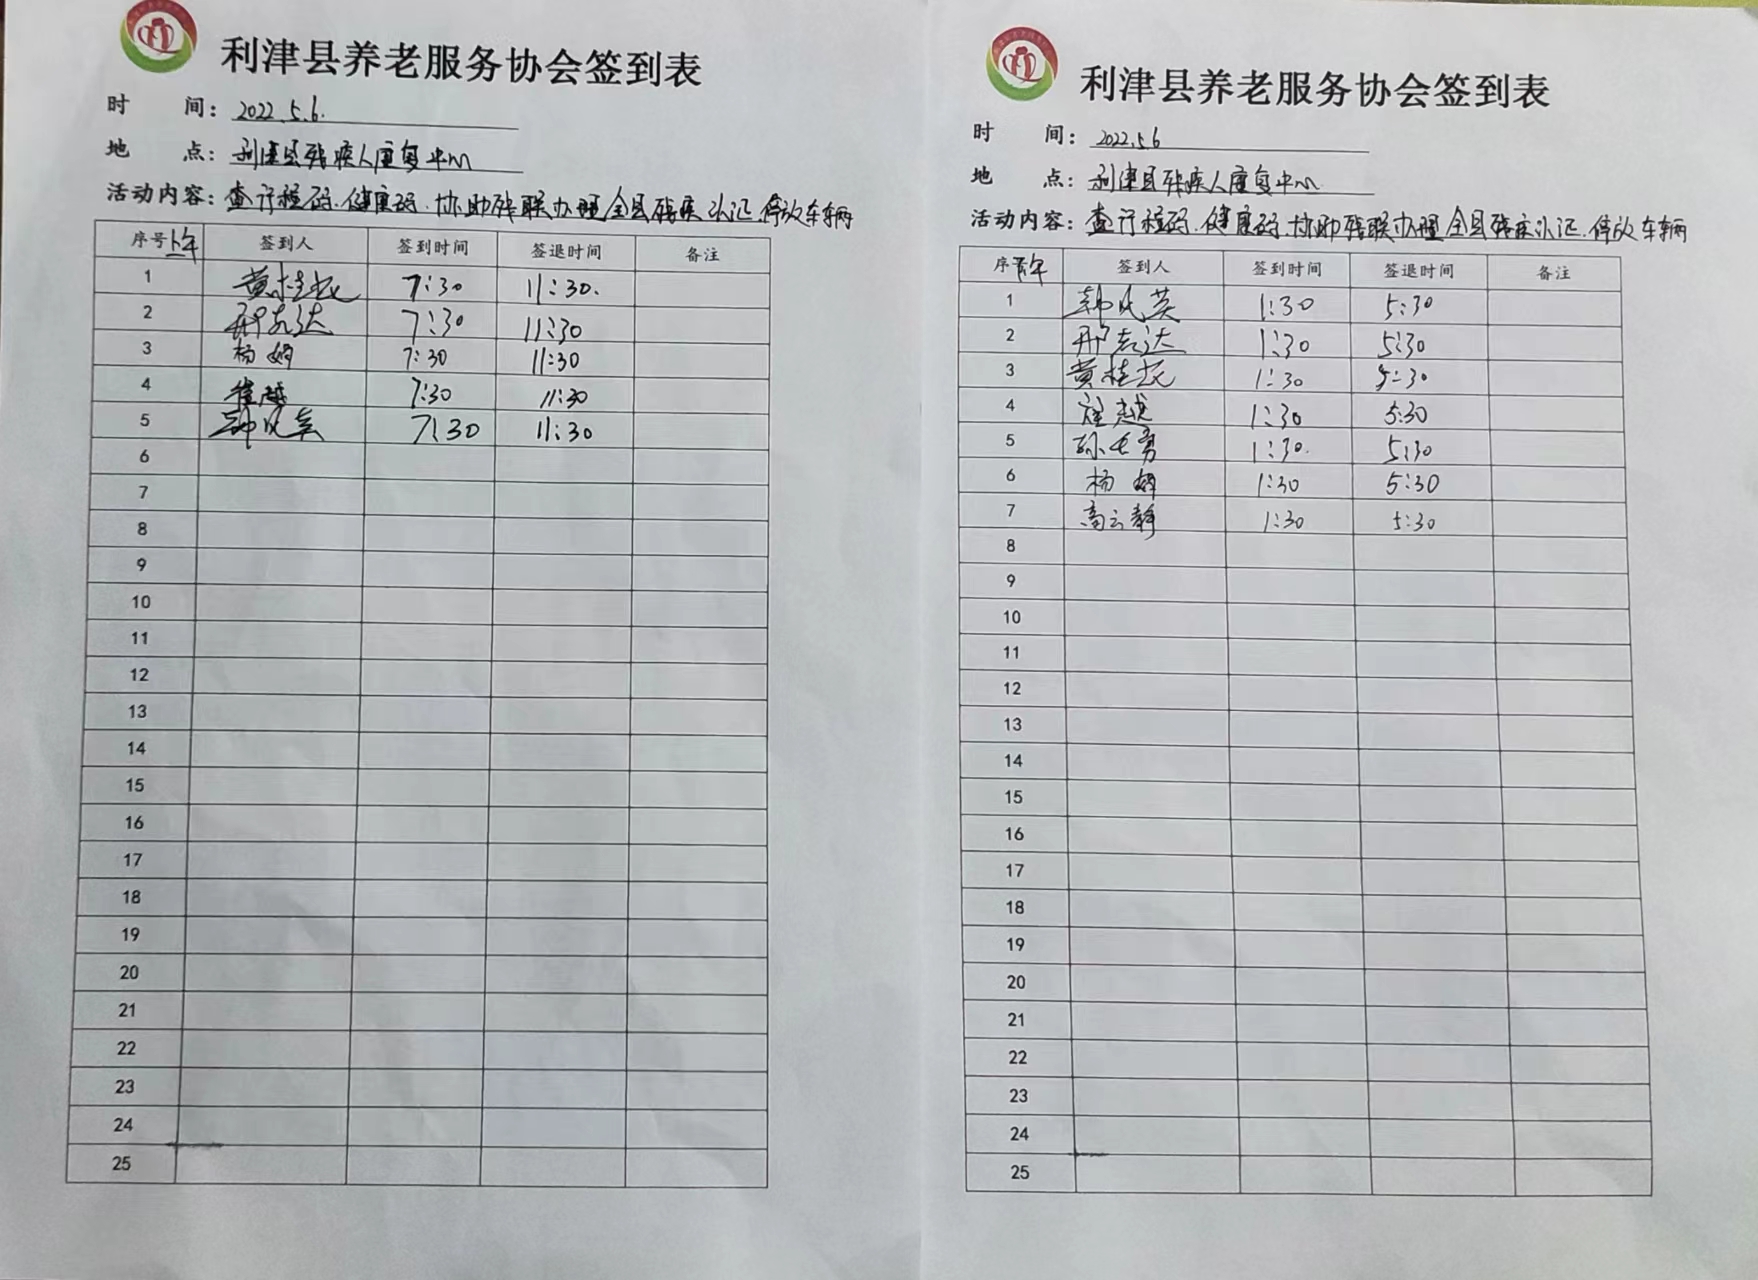 利津县养老服务协会签到表
时 间：2022.5.6.
地 点：利津县残疾人康复中心
活动内容：查行程码.健康码.协助残联办理全县残疾认证.停放车辆
序号上午 签到人 签到时间 签退时间 备注
1 黄桂花 7:30 11:30.
2 邢志达 7:30 11:30
3 杨娟 7:30 11:30
4 崔越 7:30 11:30
5 韩风英 7:30 11:30
6
7
8
9
10
11
12
13
14
15
16
17
18
19
20
21
22
23
24
25
利津县养老服务协会签到表
时 间：2022.5.6
地 点：利津县残疾人康复中心
活动内容：查行程码.健康码.协助残联办理全县残疾认证.停放车辆
序号 签到人 签到时间 签退时间 备注
1 韩风英 1:30 5:30
2 邢志达 1:30 5:30
3 黄桂花 1:30 5:30
4 崔越 1:30 5:30
5 孙长勇 1:30. 5:30
6 杨娟 1:30 5:30
7 高云静 1:30 5:30
8
9
10
11
12
13
14
15
16
17
18
19
20
21
22
23
24
25